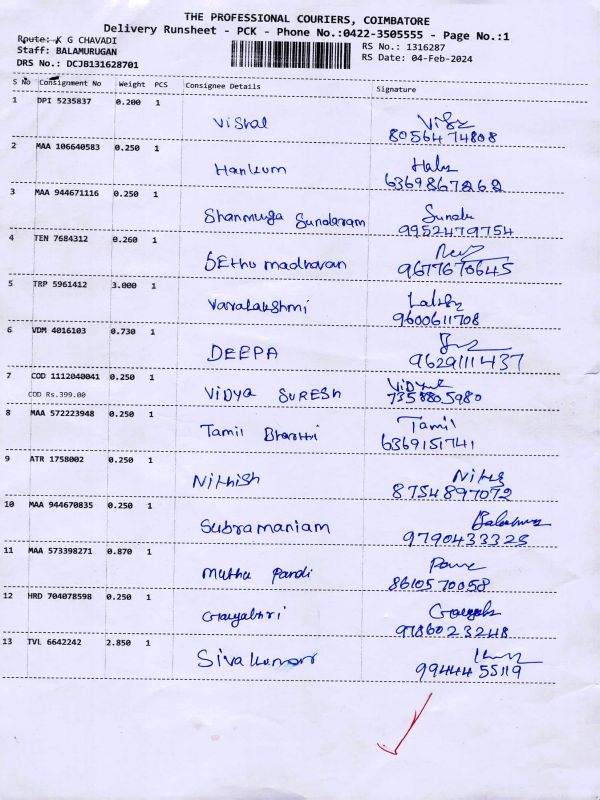 THE PROFESSIONAL COURIERS, COIMBATORE
Delivery Runsheet - PCK - Phone No.:0422-3505555 - Page No.:1
Route: K G CHAVADI
RS No.: 1316287
Staff: BALAMURUGAN
RS Date: 04-Feb-2024
DRS No.: DCJB131628701
S No Consignment No Weight PCS Consignee Details Signature
1 DPI 5235837 0.200 1
Vishal
8056474808
2 MAA 106640583 0.250 1
Hankum
6369867268
3 MAA 944671116 0.250 1
Shanmuga Sundaram
9952479754
4 TEN 7684312 0.260 1
SEthu madhavan
9677670645
5 TRP 5961412 3.000 1
Varalakshmi
9600611708
6 VDM 4016103 0.730 1
DEEPA
9629111437
7 COD 1112040041 0.250 1
COD Rs.399.00
ViDYA SURESH
7358805980
8 MAA 572223948 0.250 1
Tamil Bharthi Tamil
6369151741
9 ATR 1758002 0.250 1
Nithish
8754897072
10 MAA 944670835 0.250 1
Subramaniam
9790433323
11 MAA 573398271 0.870 1
muthu Pandi
8610570058
12 HRD 704078598 0.250 1
Gayathri
9786023248
13 TVL 6642242 2.850 1
Sivakumar
9944455119